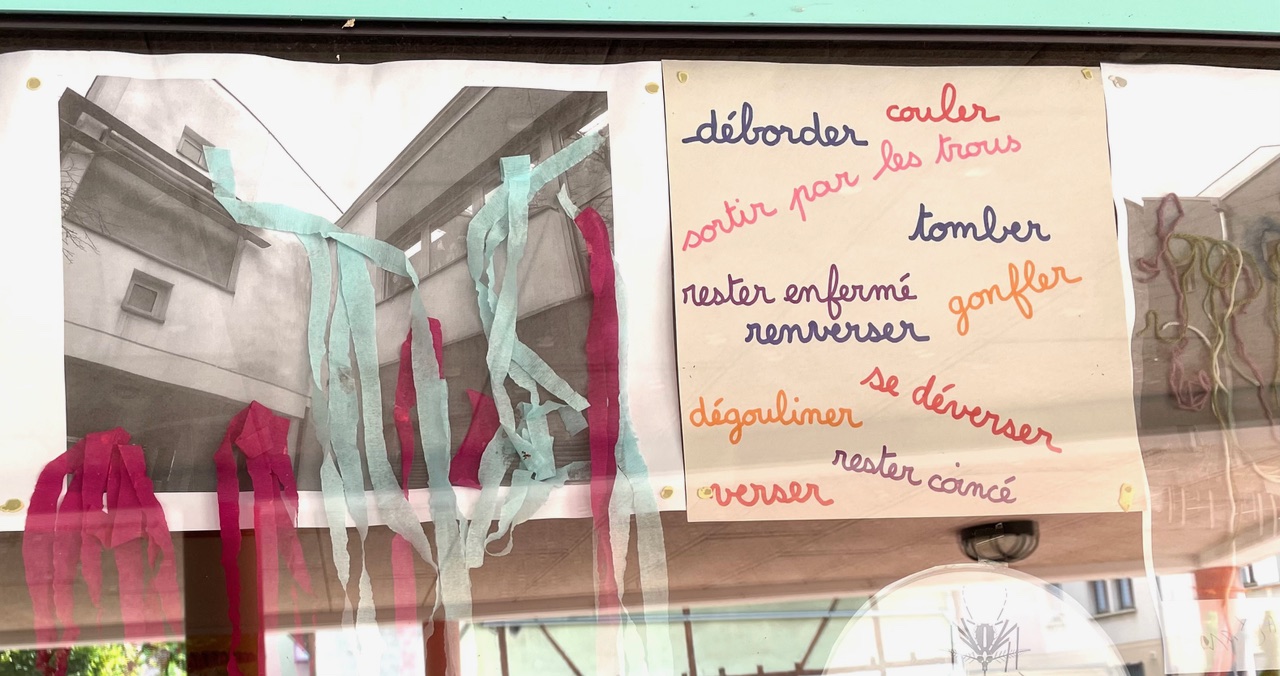 déborder
couler
sortir par les trous
tomber
rester enfermé
gonfler
renverser
se déverser
dégouliner
rester coincé
verser